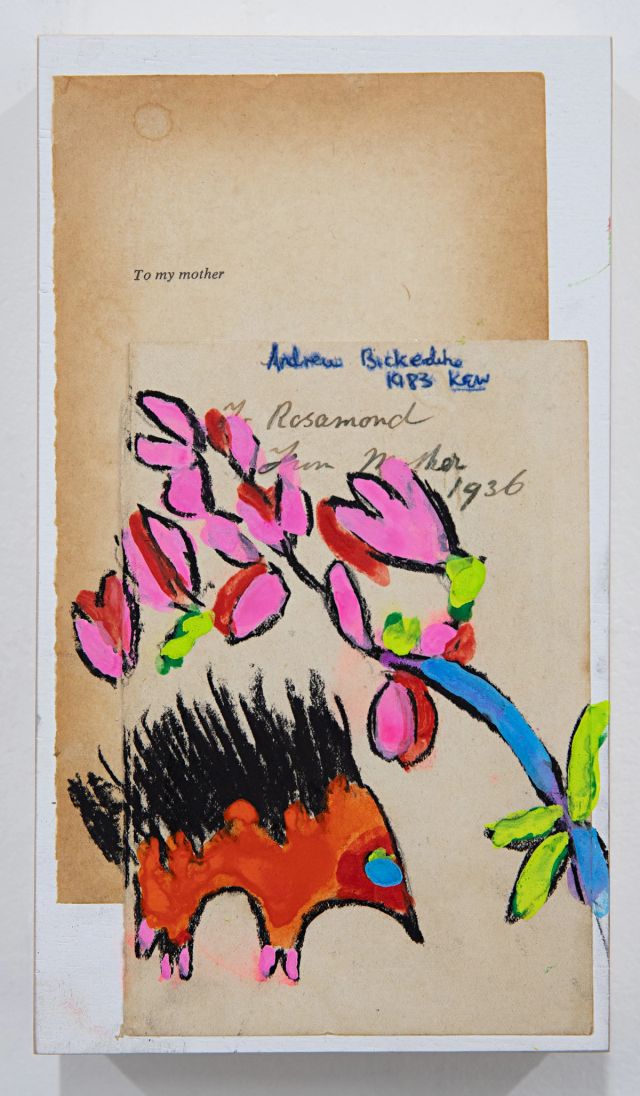 To my mother
Andrew Bickerdike
1983 KEW
To Rosamond
From Mother
1936